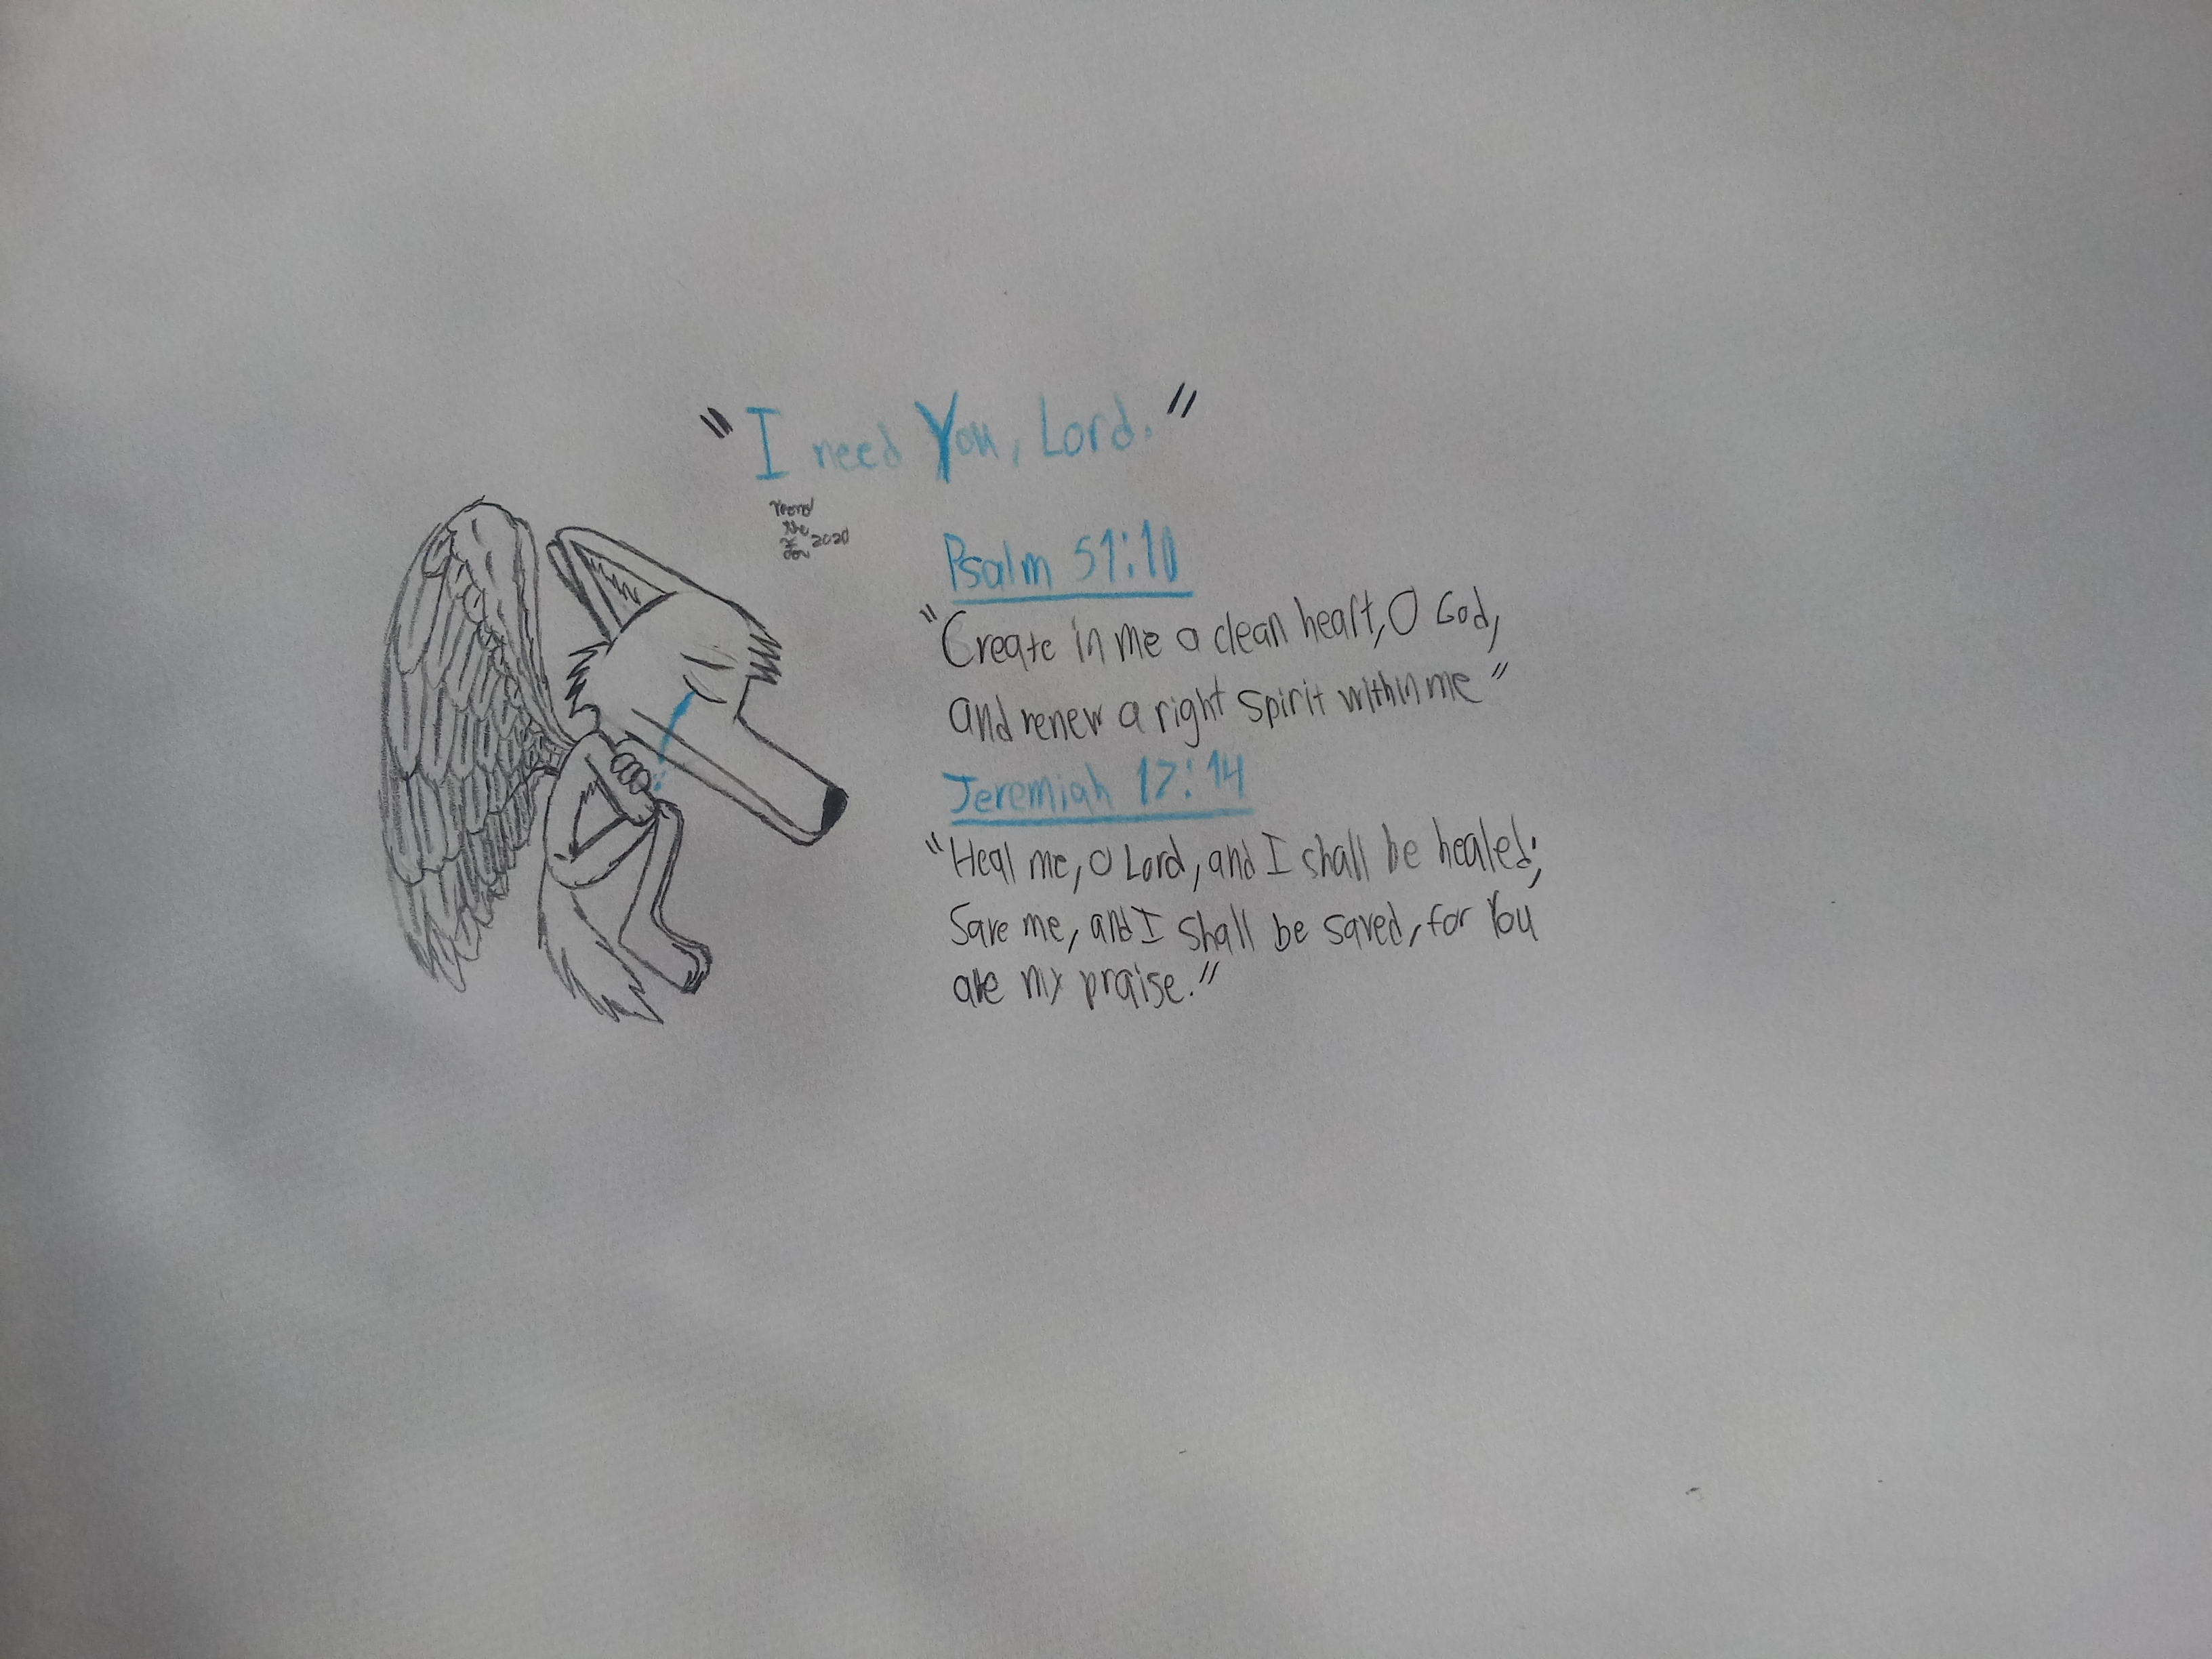 "I need You, Lord."
the
2020
Psalm 51:10
"Create in me a clean heart, O God,
and renew a right spirit within me"
Jeremiah 17:14
"Heal me, O Lord, and I shall be healed;
Save me, and I shall be saved, for You
are my praise."